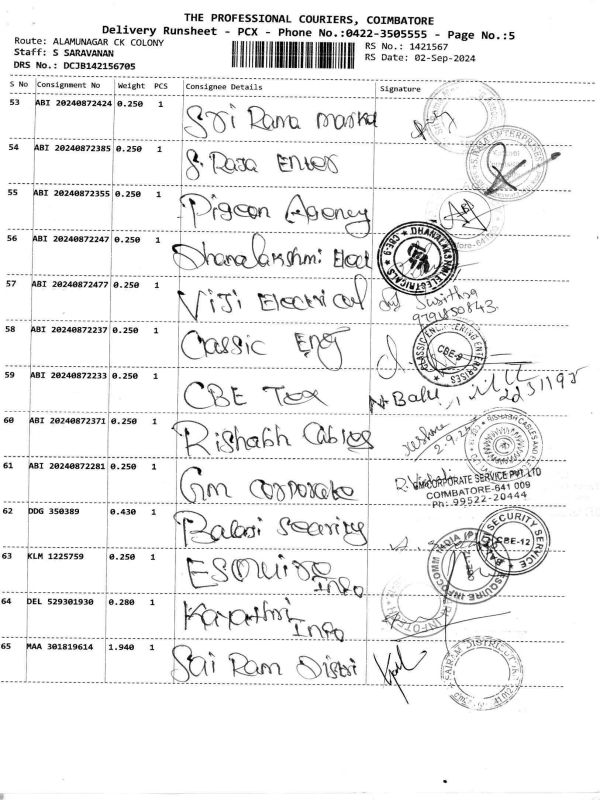 THE PROFESSIONAL COURIERS, COIMBATORE
Delivery Runsheet - PCX - Phone No.:0422-3505555 - Page No.:5
Route: ALAMUNAGAR CK COLONY
Staff: S SARAVANAN
DRS No.: DCJB142156705
RS No.: 1421567
RS Date: 02-Sep-2024
S No Consignment No Weight PCS Consignee Details Signature
53 ABI 20240872424 0.250 1 Sri Rama
54 ABI 20240872385 0.250 1 S. Raja Enter
55 ABI 20240872355 0.250 1 Pigeon Agency
56 ABI 20240872247 0.250 1 Dhanalakshmi Elect
DHANALAKSHMI ELECTRICALS CBE-9
57 ABI 20240872477 0.250 1 Viji Electrical
58 ABI 20240872237 0.250 1 Classic Eng
CLASSIC ENGINEERING ENTERPRISES CBE-9
59 ABI 20240872233 0.250 1 CBE Tex N. Balu
60 ABI 20240872371 0.250 1 Rishabh Cables Kishore
RISHABH CABLES AND
61 ABI 20240872281 0.250 1 Gm Corporate
GM CORPORATE SERVICE PVT LTD
COIMBATORE-641 009
Ph: 99522-20444
62 DDG 350389 0.430 1 Balaji Security
SECURITY SERVICE CBE-12
63 KLM 1225759 0.250 1 Esquire Info
ESQUIRE INFOCOMM INDIA (P)
64 DEL 529301930 0.280 1 Kayathri Info
65 MAA 301819614 1.940 1 Sai Ram Distri
SAIRAM DISTRIBUTOR